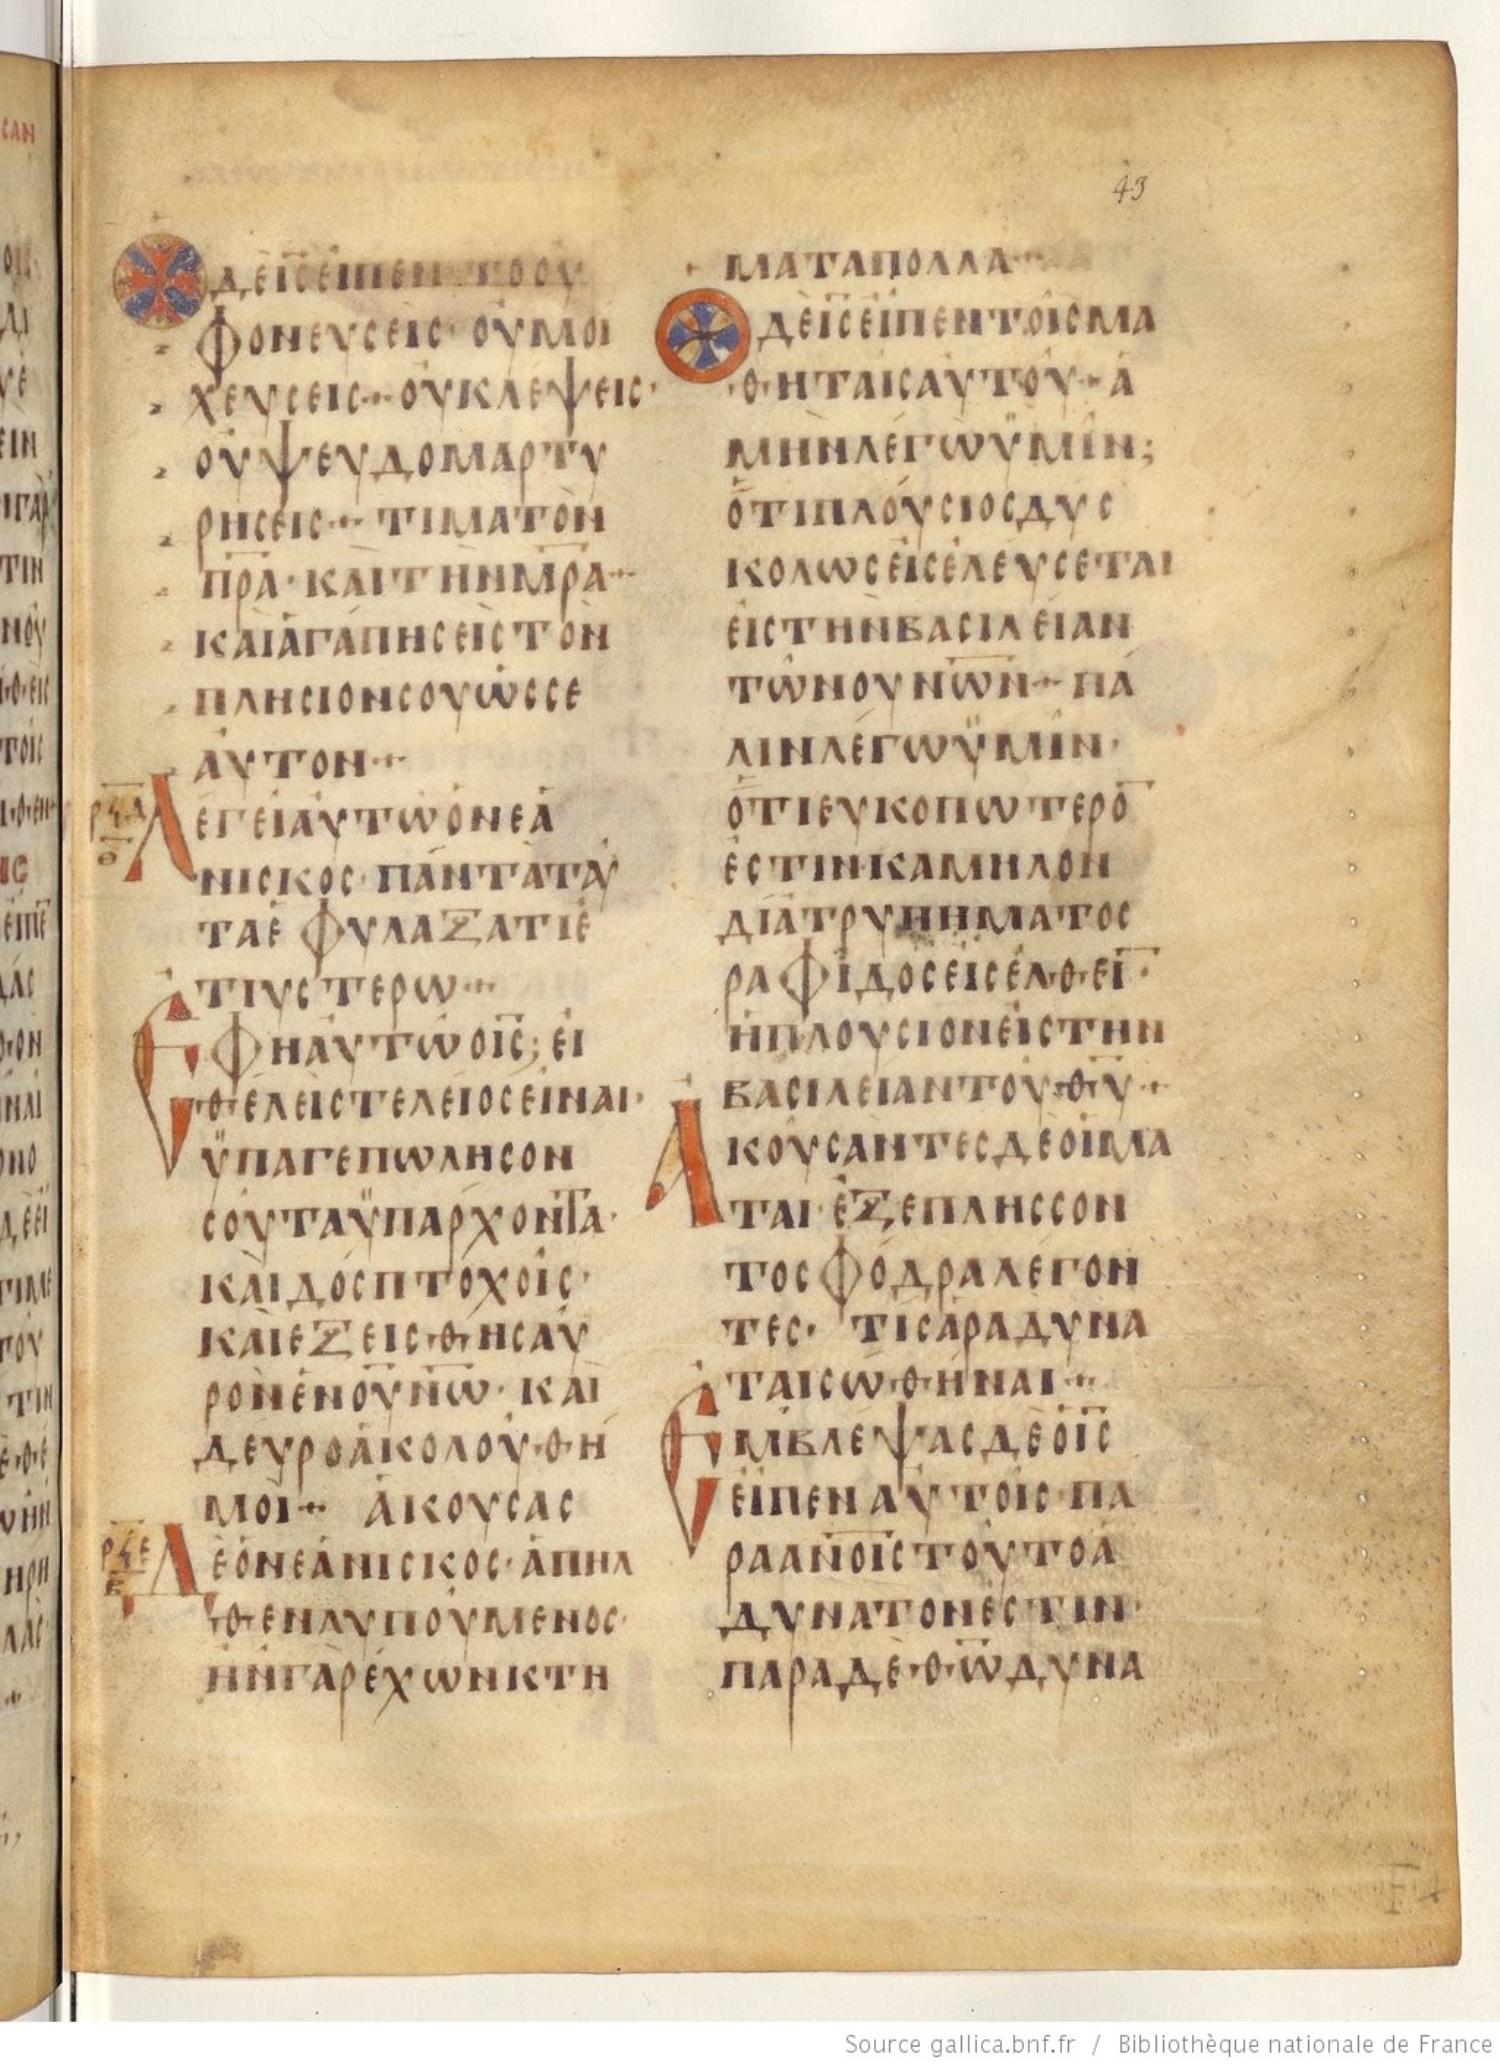 43
Ὁ ΔΕ ΙС ΕΙΠΕΝ ΤΟ ΟΥ
ΦΟΝΕΥСΕΙС· ΟΥ ΜΟΙ
ΧΕΥСΕΙС· ΟΥ ΚΛΕΨΕΙС·
ΟΥ ΨΕΥΔΟΜΑΡΤΥ
ΡΗСΕΙС· ΤΙΜΑ ΤΟΝ
Π̅Ρ̅Α· ΚΑΙ ΤΗΝ Μ̅Ρ̅Α·
ΚΑΙ ΑΓΑΠΗСΕΙС ΤΟΝ
ΠΛΗСΙΟΝ СΟΥ ΩС СΕ
ΑΥΤΟΝ·
ΡϞΔ
ΛΕΓΕΙ ΑΥΤΩ Ο ΝΕΑ
ΝΙСΚΟС· ΠΑΝΤΑ ΤΑΥ
ΤΑ ΕΦΥΛΑΞΑ ΤΙ Ε
ΤΙ ΥСΤΕΡΩ·
ΕΦΗ ΑΥΤΩ Ο Ι̅С̅; ΕΙ
ΘΕΛΕΙС ΤΕΛΕΙΟС ΕΙΝΑΙ·
ΫΠΑΓΕ ΠΩΛΗСΟΝ
СΟΥ ΤΑ ΫΠΑΡΧΟΝΤΑ·
ΚΑΙ ΔΟС ΠΤΟΧΟΙС·
ΚΑΙ ΕΞΕΙС ΘΗСΑΥ
ΡΟΝ ΕΝ ΟΥ̅Ν̅Ω̅· ΚΑΙ
ΔΕΥΡΟ ΑΚΟΛΟΥΘΗ
ΜΟΙ· ΑΚΟΥСΑС
ΡϞΕ
Β
ΔΕ Ο ΝΕΑΝΙСΚΟС· ΑΠΗΛ
ΘΕΝ ΛΥΠΟΥΜΕΝΟС·
ΗΝ ΓΑΡ ΕΧΩΝ ΚΤΗ
ΜΑΤΑ ΠΟΛΛΑ·
Ὁ ΔΕ Ι̅С̅ ΕΙΠΕΝ ΤΟΙС ΜΑ
ΘΗΤΑΙС ΑΥΤΟΥ· Α
ΜΗΝ ΛΕΓΩ ΫΜΙΝ;
ΟΤΙ ΠΛΟΥСΙΟС ΔΥС
ΚΟΛΩС ΕΙСΕΛΕΥСΕΤΑΙ
ΕΙС ΤΗΝ ΒΑСΙΛΕΙΑΝ
ΤΩΝ ΟΥΝ̅Ω̅Ν· ΠΑ
ΛΙΝ ΛΕΓΩ ΫΜΙΝ·
ΟΤΙ ΕΥΚΟΠΩΤΕΡΟ̅
ΕСΤΙΝ ΚΑΜΗΛΟΝ
ΔΙΑ ΤΡΥΠΗΜΑΤΟС
ΡΑΦΙΔΟС ΕΙСΕΛΘΕΙ̅·
Η ΠΛΟΥСΙΟΝ ΕΙС ΤΗΝ
ΒΑСΙΛΕΙΑΝ ΤΟΥ Θ̅Υ̅·
ΑΚΟΥСΑΝΤΕС ΔΕ ΟΙ ΜΑ
ΤΑΙ· ΕΞΕΠΛΗССΟΝ
ΤΟ СΦΟΔΡΑ ΛΕΓΟΝ
ΤΕС· ΤΙС ΑΡΑ ΔΥΝΑ
ΤΑΙ СΩΘΗΝΑΙ·
ΕΜΒΛΕΨΑС ΔΕ Ο Ι̅С̅
ΕΙΠΕΝ ΑΥΤΟΙС· ΠΑ
ΡΑ Α̅Ν̅ΟΙС ΤΟΥΤΟ Α
ΔΥΝΑΤΟΝ ΕСΤΙΝ·
ΠΑΡΑ ΔΕ Θ̅Ω̅ ΔΥΝΑ
Source gallica.bnf.fr / Bibliothèque nationale de France